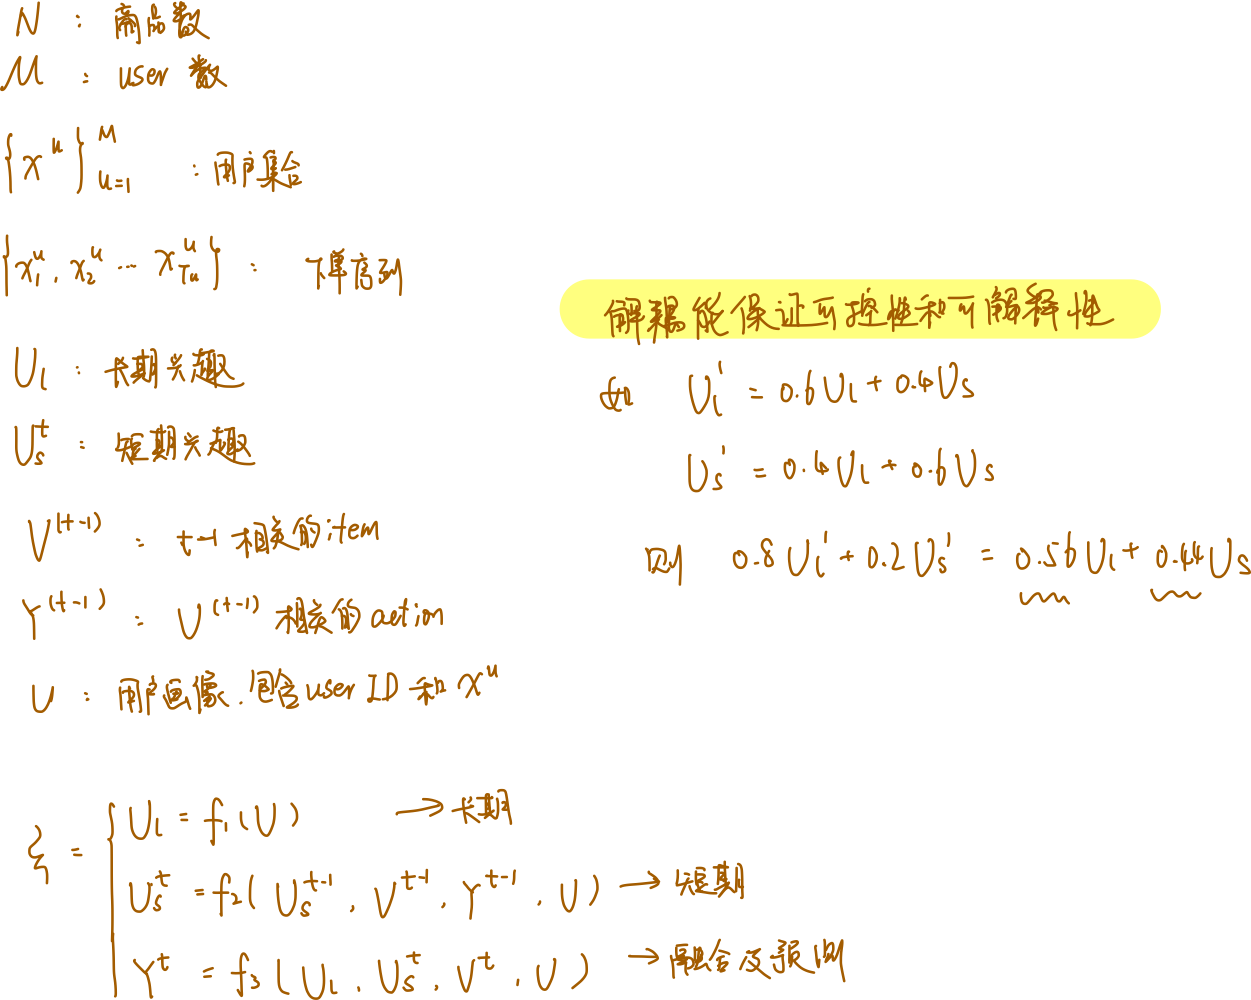 N : 商品数
M : user 数
{x^u}_{u=1}^M : 用户集合
{x_1^u, x_2^u ... x_{T_u}^u} : 下单序列
U_l : 长期兴趣
U_s^t : 短期兴趣
V^{(t-1)} : t-1 相关的item
Y^{(t-1)} : V^{(t-1)} 相关的action
U : 用户画像. 包含user ID 和 x^u
ξ = { U_l = f_1(U) → 长期
U_s^t = f_2( U_s^{t-1}, V^{t-1}, Y^{t-1}, U) → 短期
Y^t = f_3 ( U_l, U_s^t, V^t, U ) → 融合及预测
解耦能保证可控性和可解释性
如 U_l' = 0.6U_l + 0.4U_s
U_s' = 0.4U_l + 0.6U_s
则 0.8U_l' + 0.2U_s' = 0.56U_l + 0.44U_s